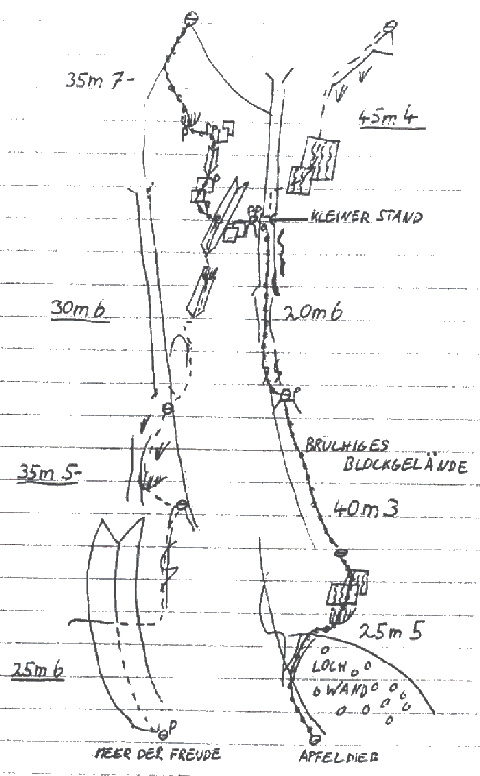 35m 7-
45m 4
KLEINER STAND
30m 6
20m 6
BRUCHIGES
BLOCKGELÄNDE
35m 5-
40m 3
25m 5
LOCH
WAND
25m 6
P
P
MEER DER FREUDE
APFELDIEB